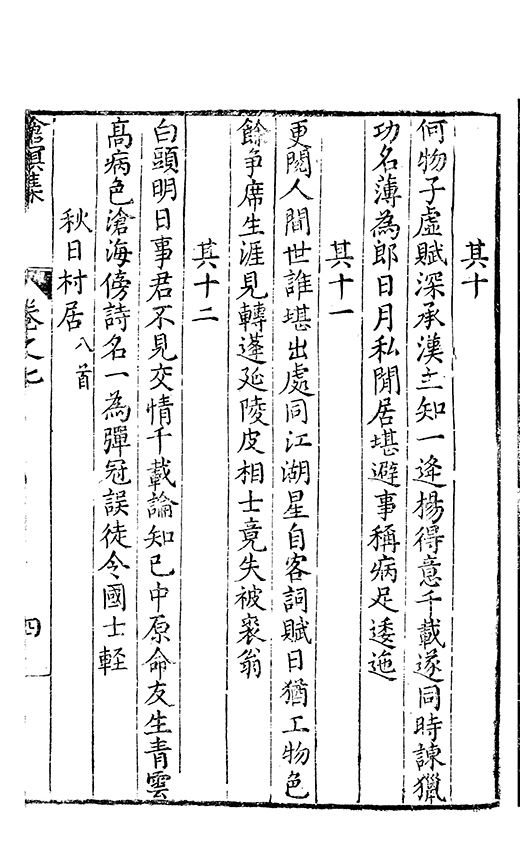 其十
何物子虛賦深承漢主知一逢揚得意千載遂同時諫獵
功名薄為郎日月私閒居堪避事稱病足逶迤
其十一
更閱人間世誰堪出處同江湖星自客詞賦日猶工物色
餘爭席生涯見轉蓬延陵皮相士竟失被裘翁
其十二
白頭明日事君不見交情千載論知已中原命友生青雲
高病色滄海傍詩名一為彈冠誤徒令國士輕
秋日村居八首
滄溟集 卷之七 四